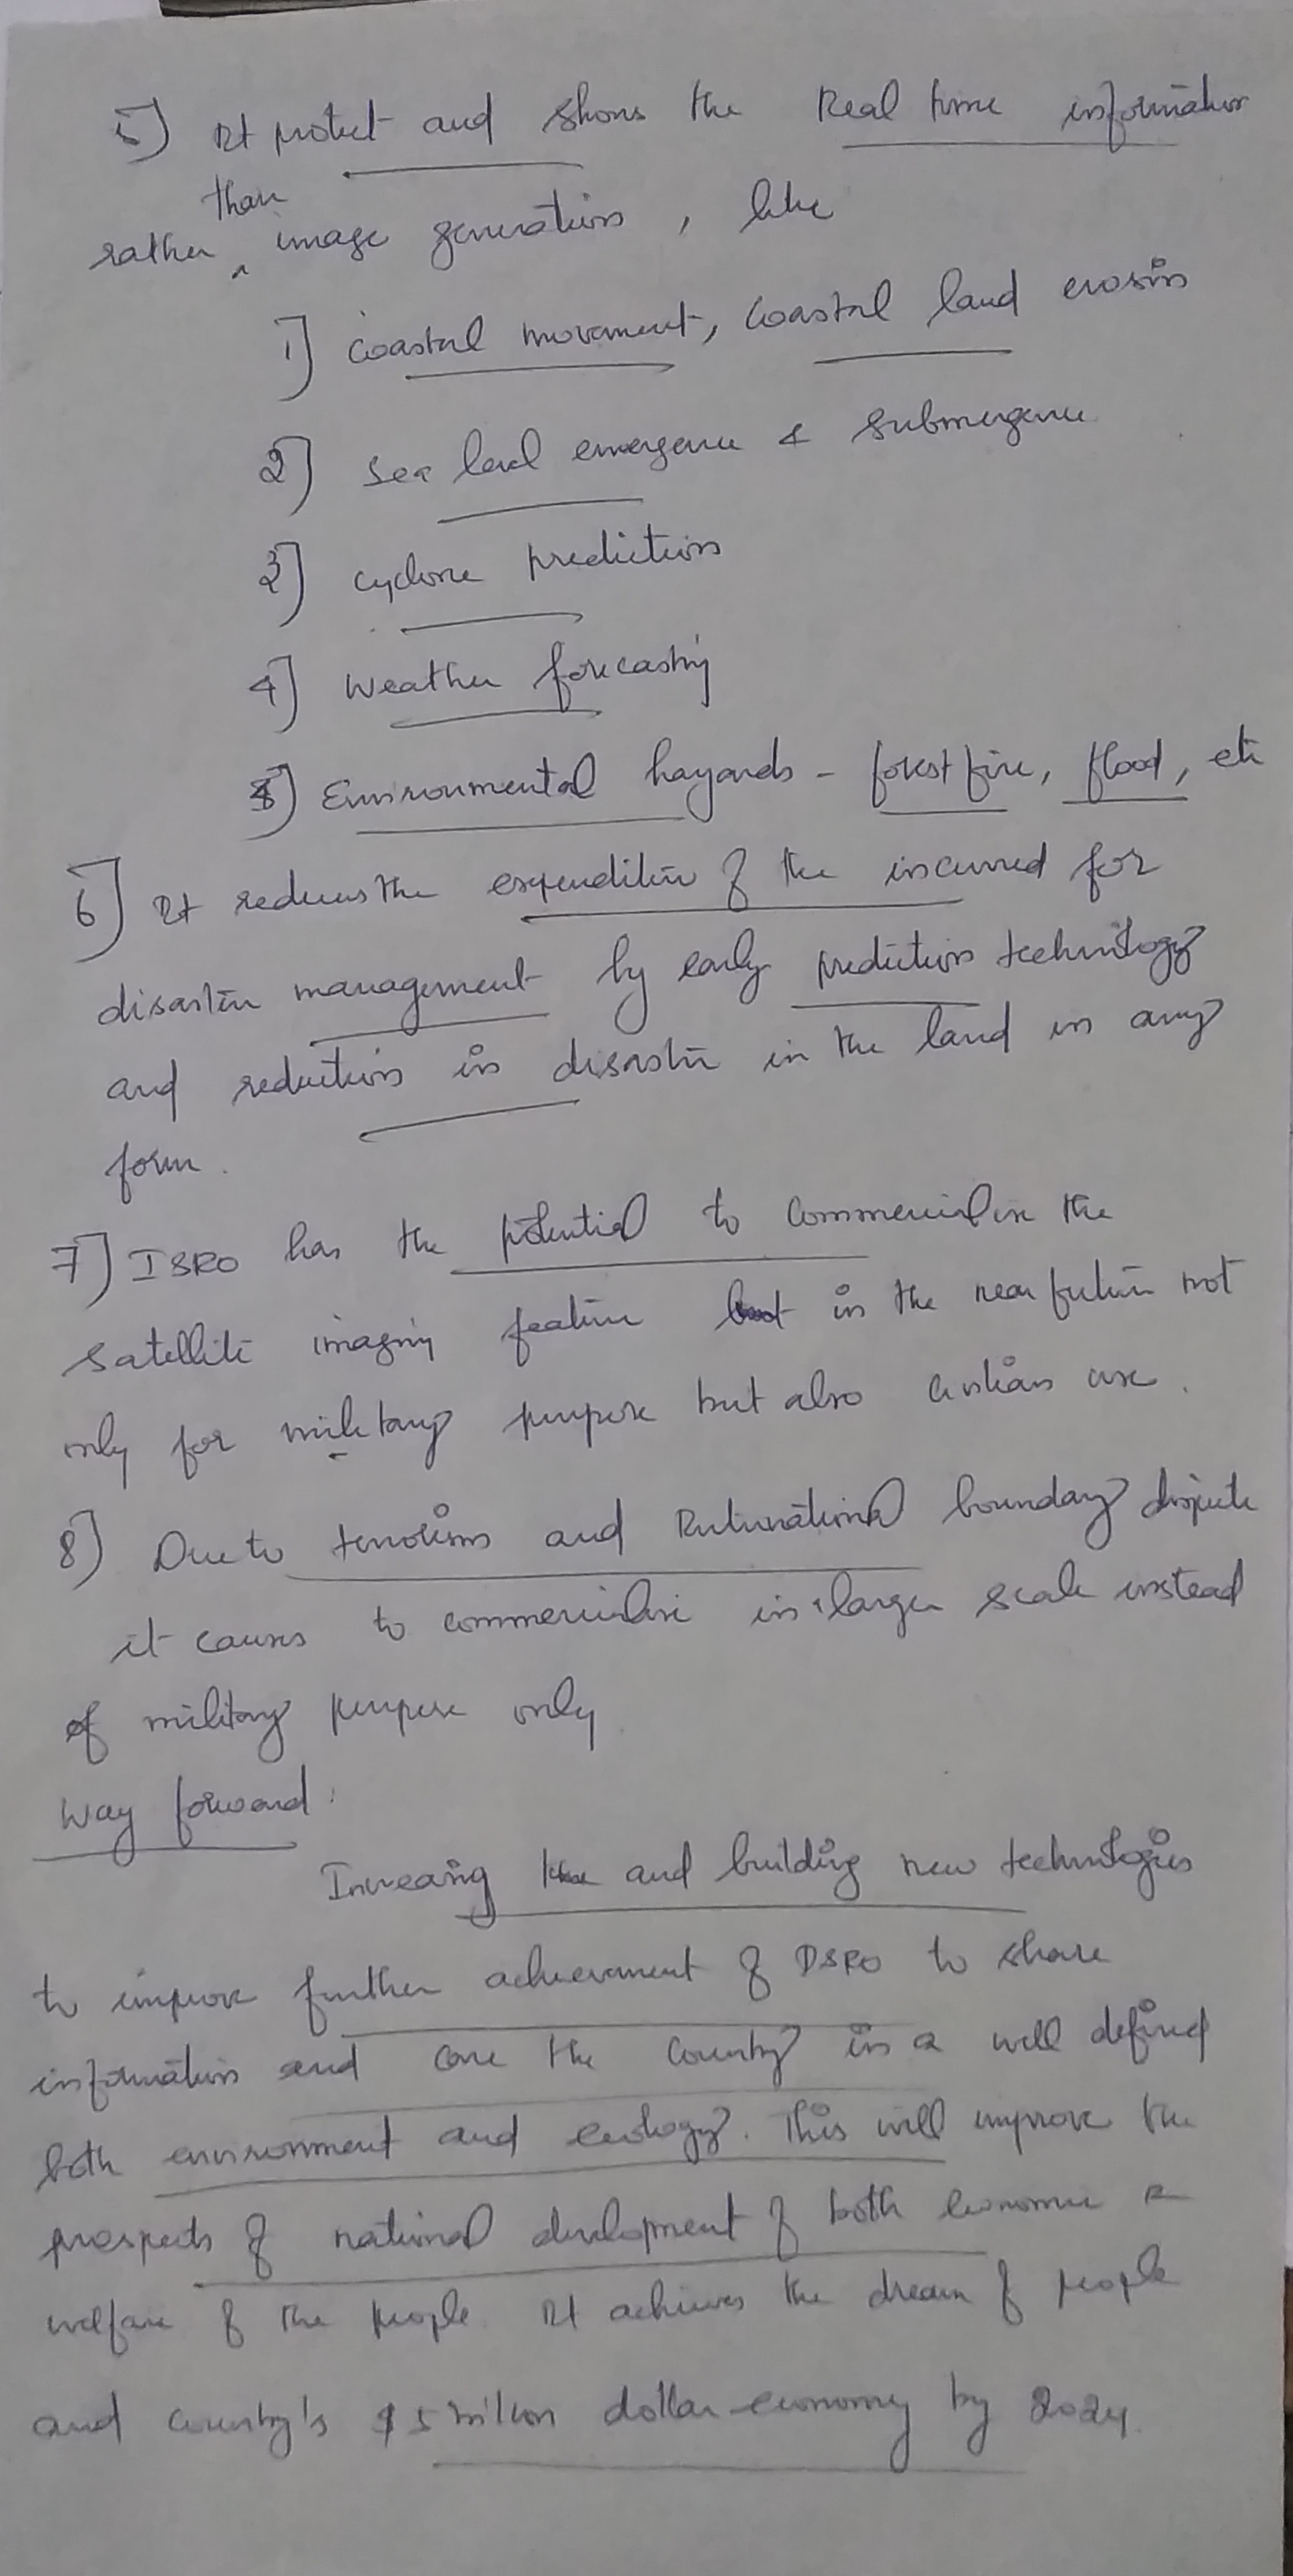 5] It protect and shows the Real time information
rather than image generations, like
1] Coastal movement, Coastal land erosion
2] Sea level emergence & submergence
3] cyclone prediction
4] Weather forecasting
5] Environmental hazards - forest fire, flood, etc
6] It reduces the expenditure of the incurred for
disaster management by early prediction technology
and reduction in disaster in the land in any
form.
7] ISRO has the potential to commercialise the
satellite imaging feature in the near future not
only for military purpose but also civilian use.
8] Due to terrorism and International boundary dispute
it causes to commercialise in larger scale instead
of military purpose only.
Way forward:
Increasing and building new technologies
to improve further achievement of ISRO to share
information and the country in a well defined
both environment and ecology. This will improve the
prospects of national development of both economic &
welfare of the people. It achieves the dream of people
and country's $5 trillion dollar economy by 2024.